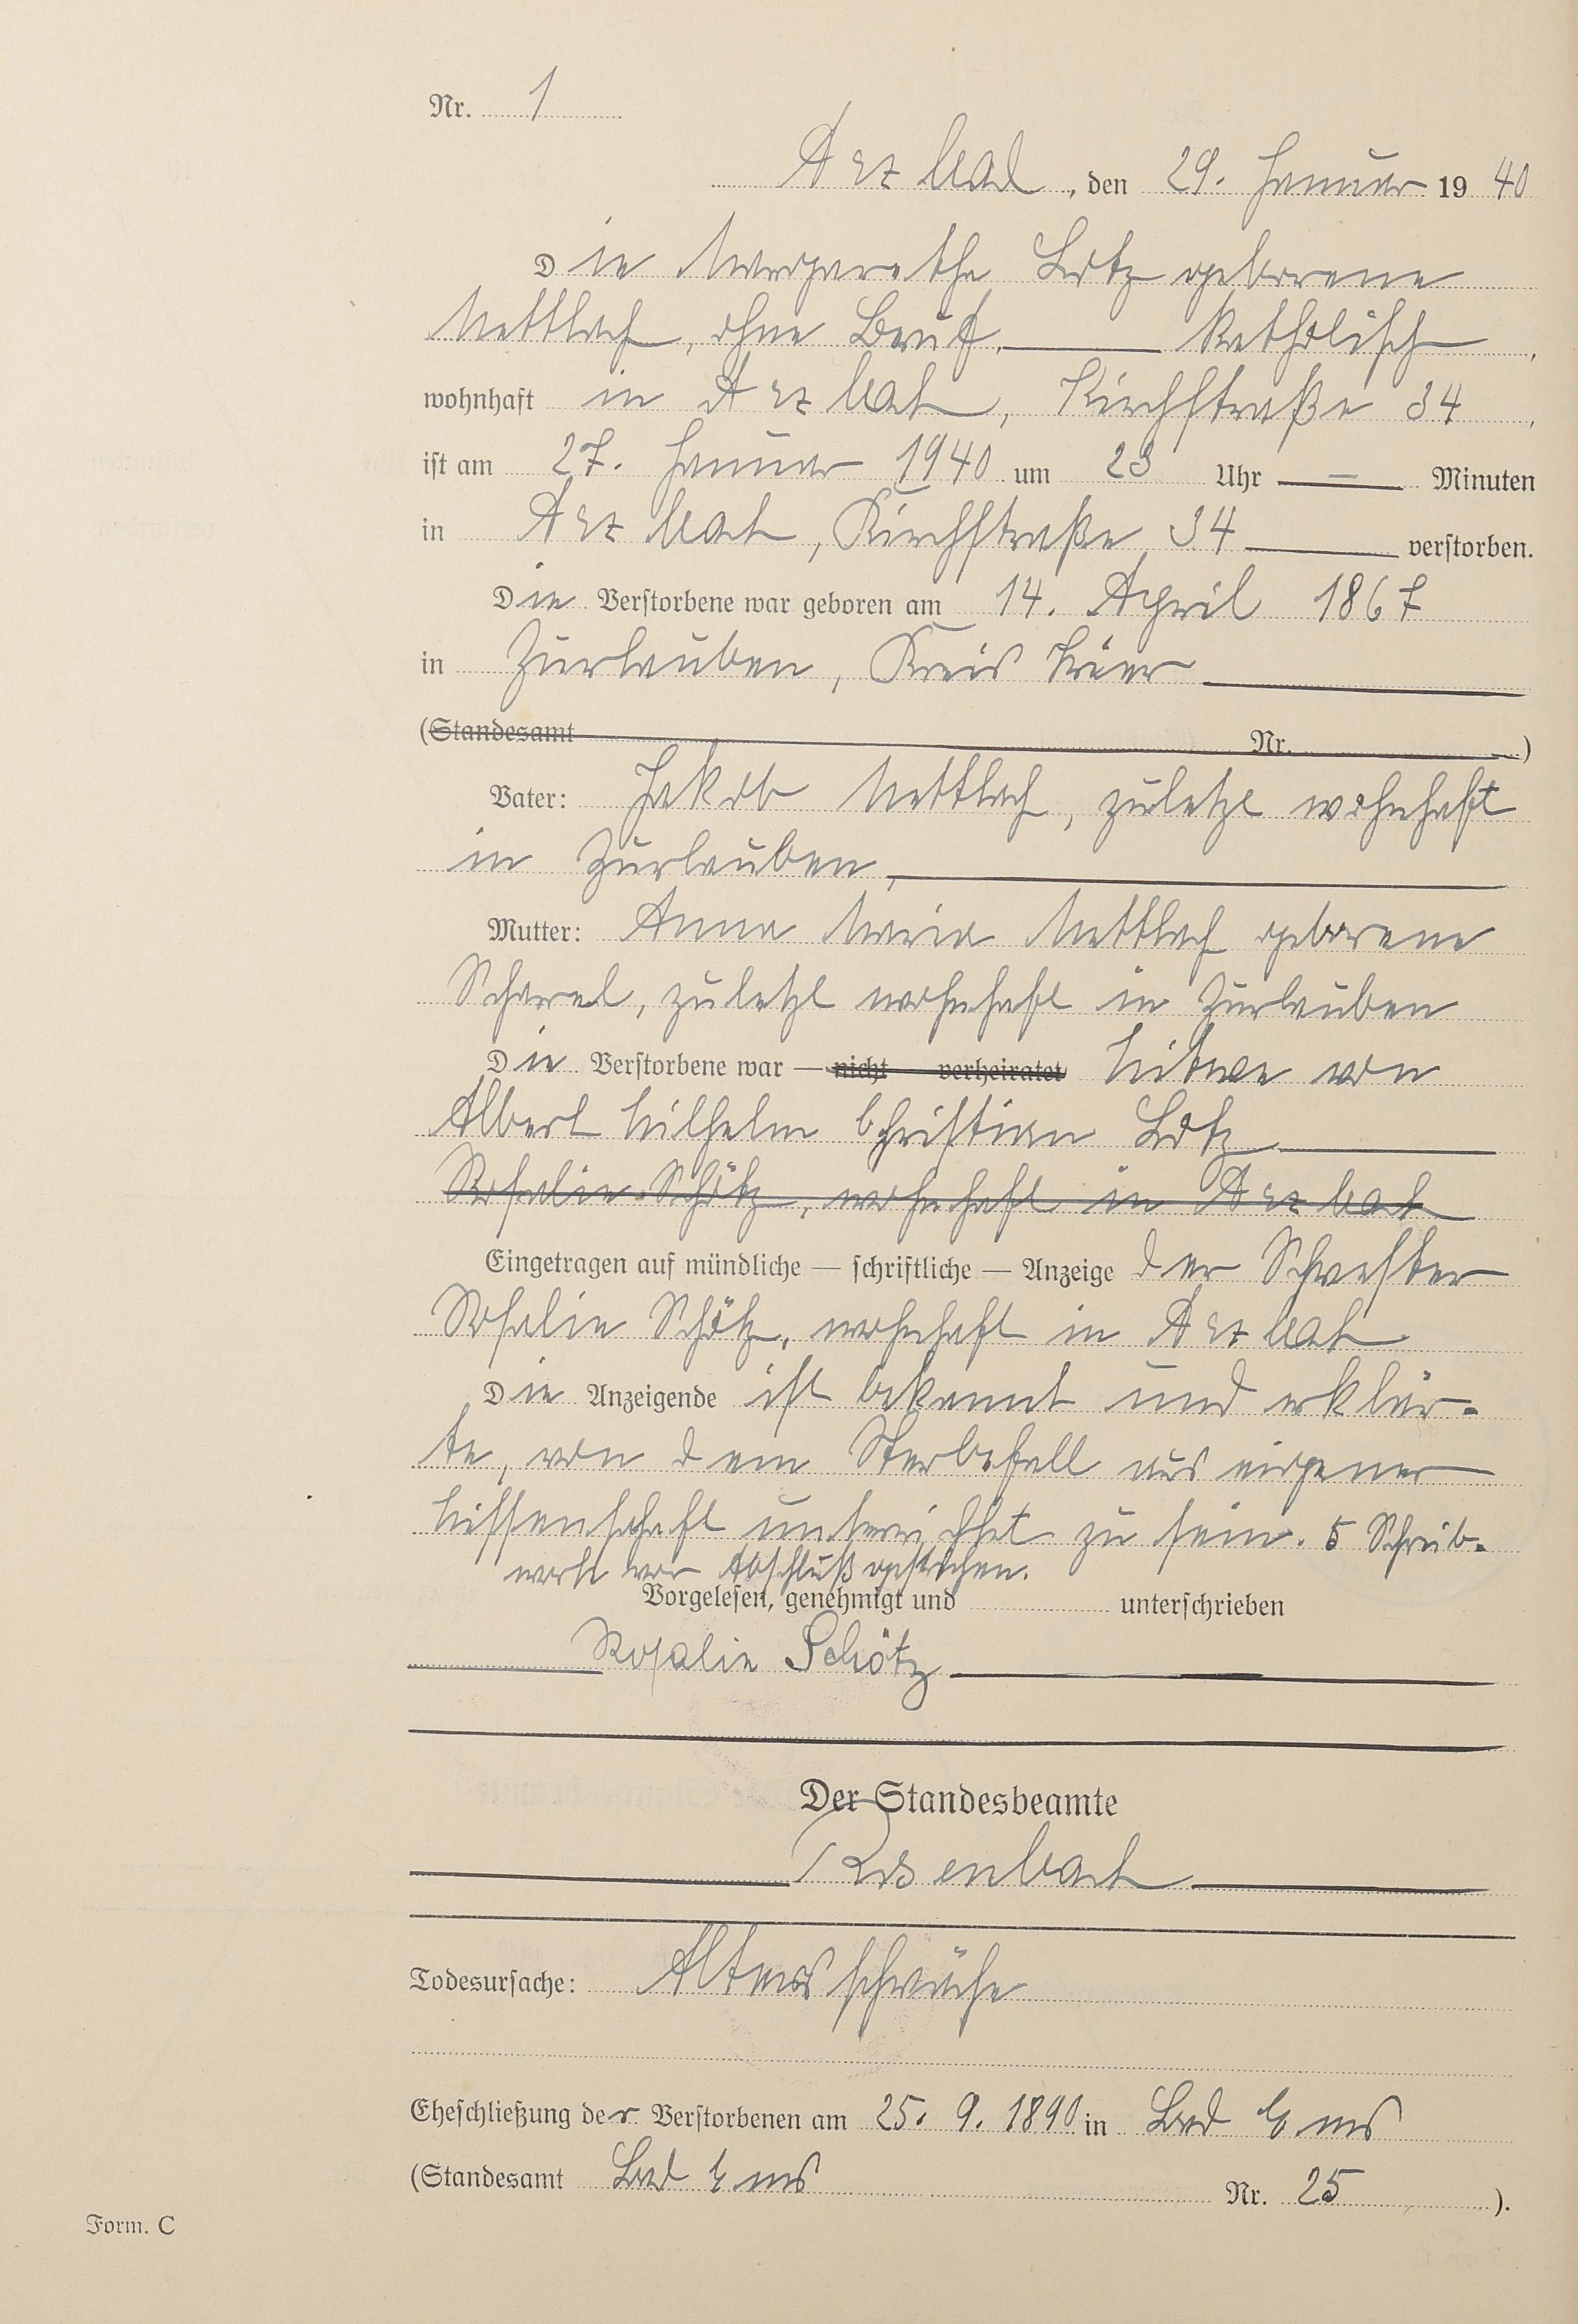 Nr. 1
Arzbach, den 29. Januar 1940
Die Margarethe Lotz geborene
Mettlach, ohne Beruf, katholisch,
wohnhaft in Arzbach, Kirchstraße 34,
ist am 27. Januar 1940 um 23 Uhr — Minuten
in Arzbach, Kirchstraße 34 verstorben.
Die Verstorbene war geboren am 14. April 1867
in Zurlauben, Kreis Trier
(Standesamt Nr. )
Vater: Jakob Mettlach, zuletzt wohnhaft
in Zurlauben,
Mutter: Anna Maria Mettlach geborene
zuletzt wohnhaft in Zurlauben
Die Verstorbene war — nicht verheiratet Witwe von
Albert Wilhelm Christian Lotz
Rosalie Schötz, wohnhaft in Arzbach
Eingetragen auf mündliche — schriftliche — Anzeige der Schwester
Rosalie Schötz, wohnhaft in Arzbach
Die Anzeigende ist bekannt und erklär-
te, von dem Sterbefall aus eigener
Wissenschaft unterrichtet zu sein. 5 Schreib-
worte vor Abschluß gestrichen.
Vorgelesen, genehmigt und unterschrieben
Rosalie Schötz
Der Standesbeamte
Rosenbach
Todesursache: Altersschwäche
Eheschließung der Verstorbenen am 25. 9. 1890 in Bad Ems
(Standesamt Bad Ems Nr. 25 ).
Form. C